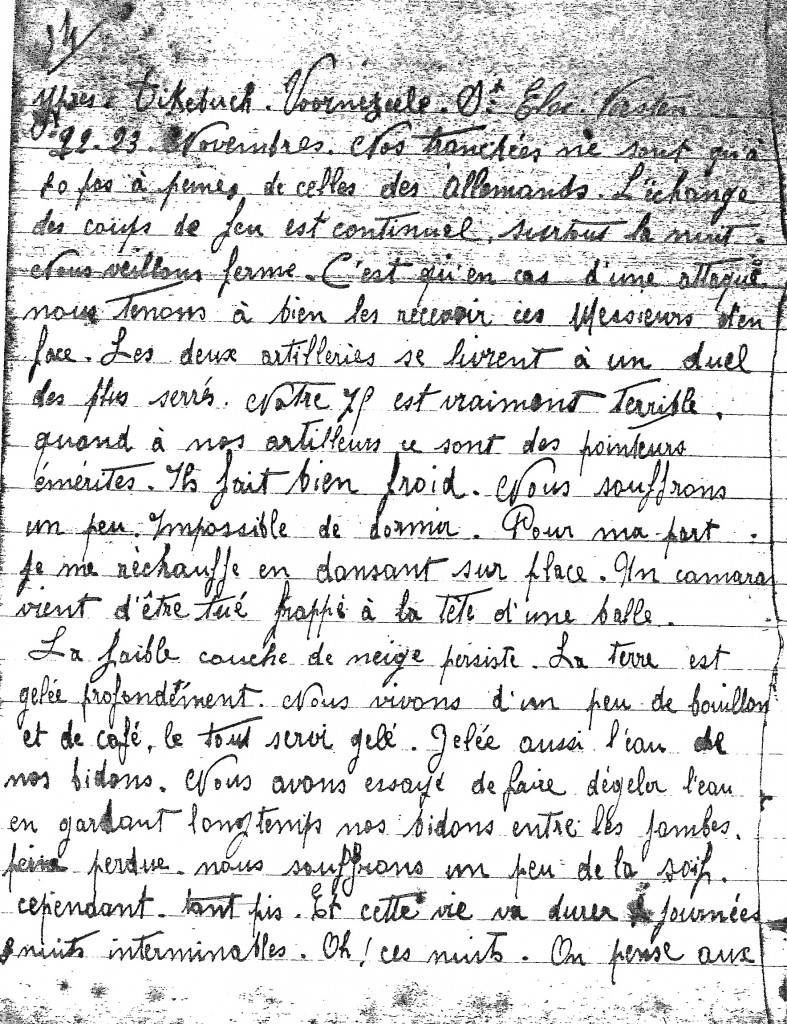 Ypres. Dikebuch. Voornezeele. St Eloi.
22-23 Novembres. Nos tranchées ne sont qu'à
20 pas à peines de celles des Allemands. L'échange
des coups de feu est continuel, surtout la nuit.
Nous veillons ferme. C'est qu'en cas d'une attaque
nous tenons à bien les recevoir ces Messieurs d'en
face. Les deux artilleries se livrent à un duel
des plus serrés. Notre 75 est vraiment terrible,
quand à nos artilleurs ce sont des pointeurs
émérites. Ils fait bien froid. Nous souffrons
un peu. Impossible de dormir. Pour ma part
je me réchauffe en dansant sur place. Un camara
vient d'être tué frappé à la tête d'une balle.
La faible couche de neige persiste. La terre est
gelée profondément. Nous vivons d'un peu de bouillon
et de café, le tout servi gelé. Gelée aussi l'eau de
nos bidons. Nous avons essayé de faire dégeler l'eau
en gardant longtemps nos bidons entre les jambes.
peine perdue. nous souffrons un peu de la soif.
cependant. tant pis. Et cette vie va durer journées
nuits interminables. Oh! ces nuits. On pense aux